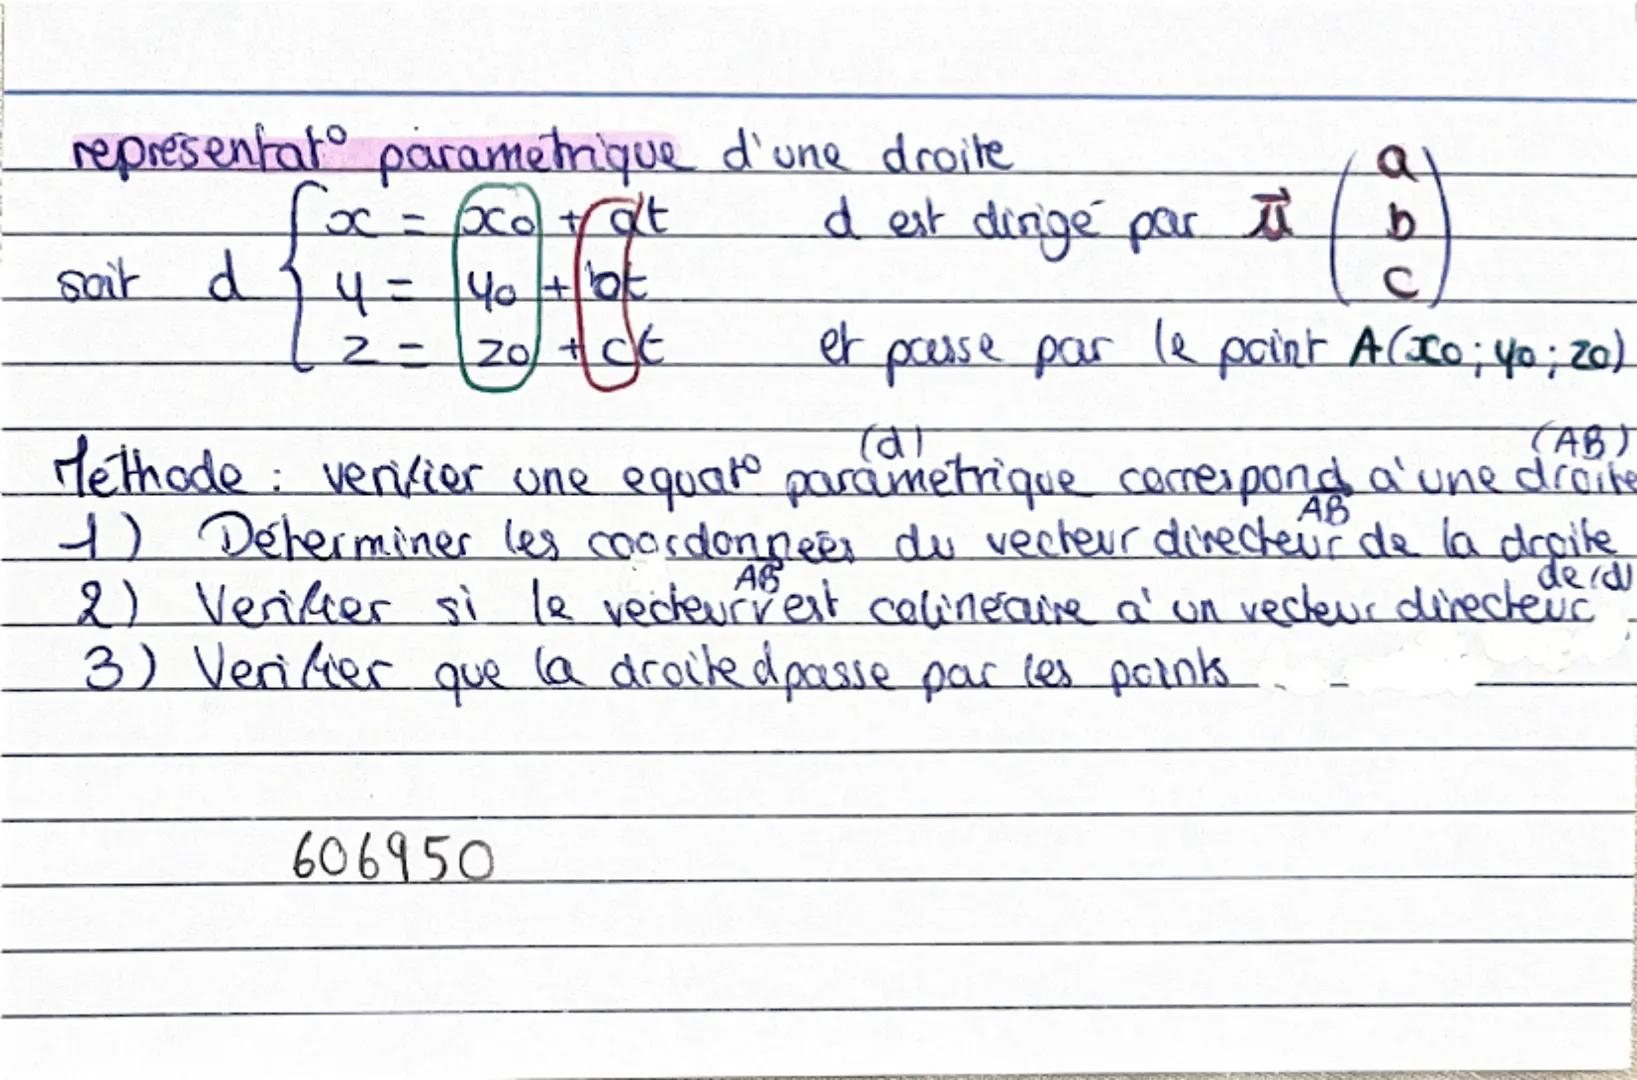 représentat° paramétrique d'une droite
soit d { x = x0 + at
y = y0 + bt
z = z0 + ct
d est dirigé par u⃗ (a b c)
et passe par le point A(x0; y0; z0)
Méthode : verifier une equat° paramétrique (d) correspond à une droite (AB)
1) Déterminer les coordonnées du vecteur directeur AB de la droite
2) Verifier si le vecteur AB est colinéaire à un vecteur directeur de (d)
3) Verifier que la droite d passe par les points
606950